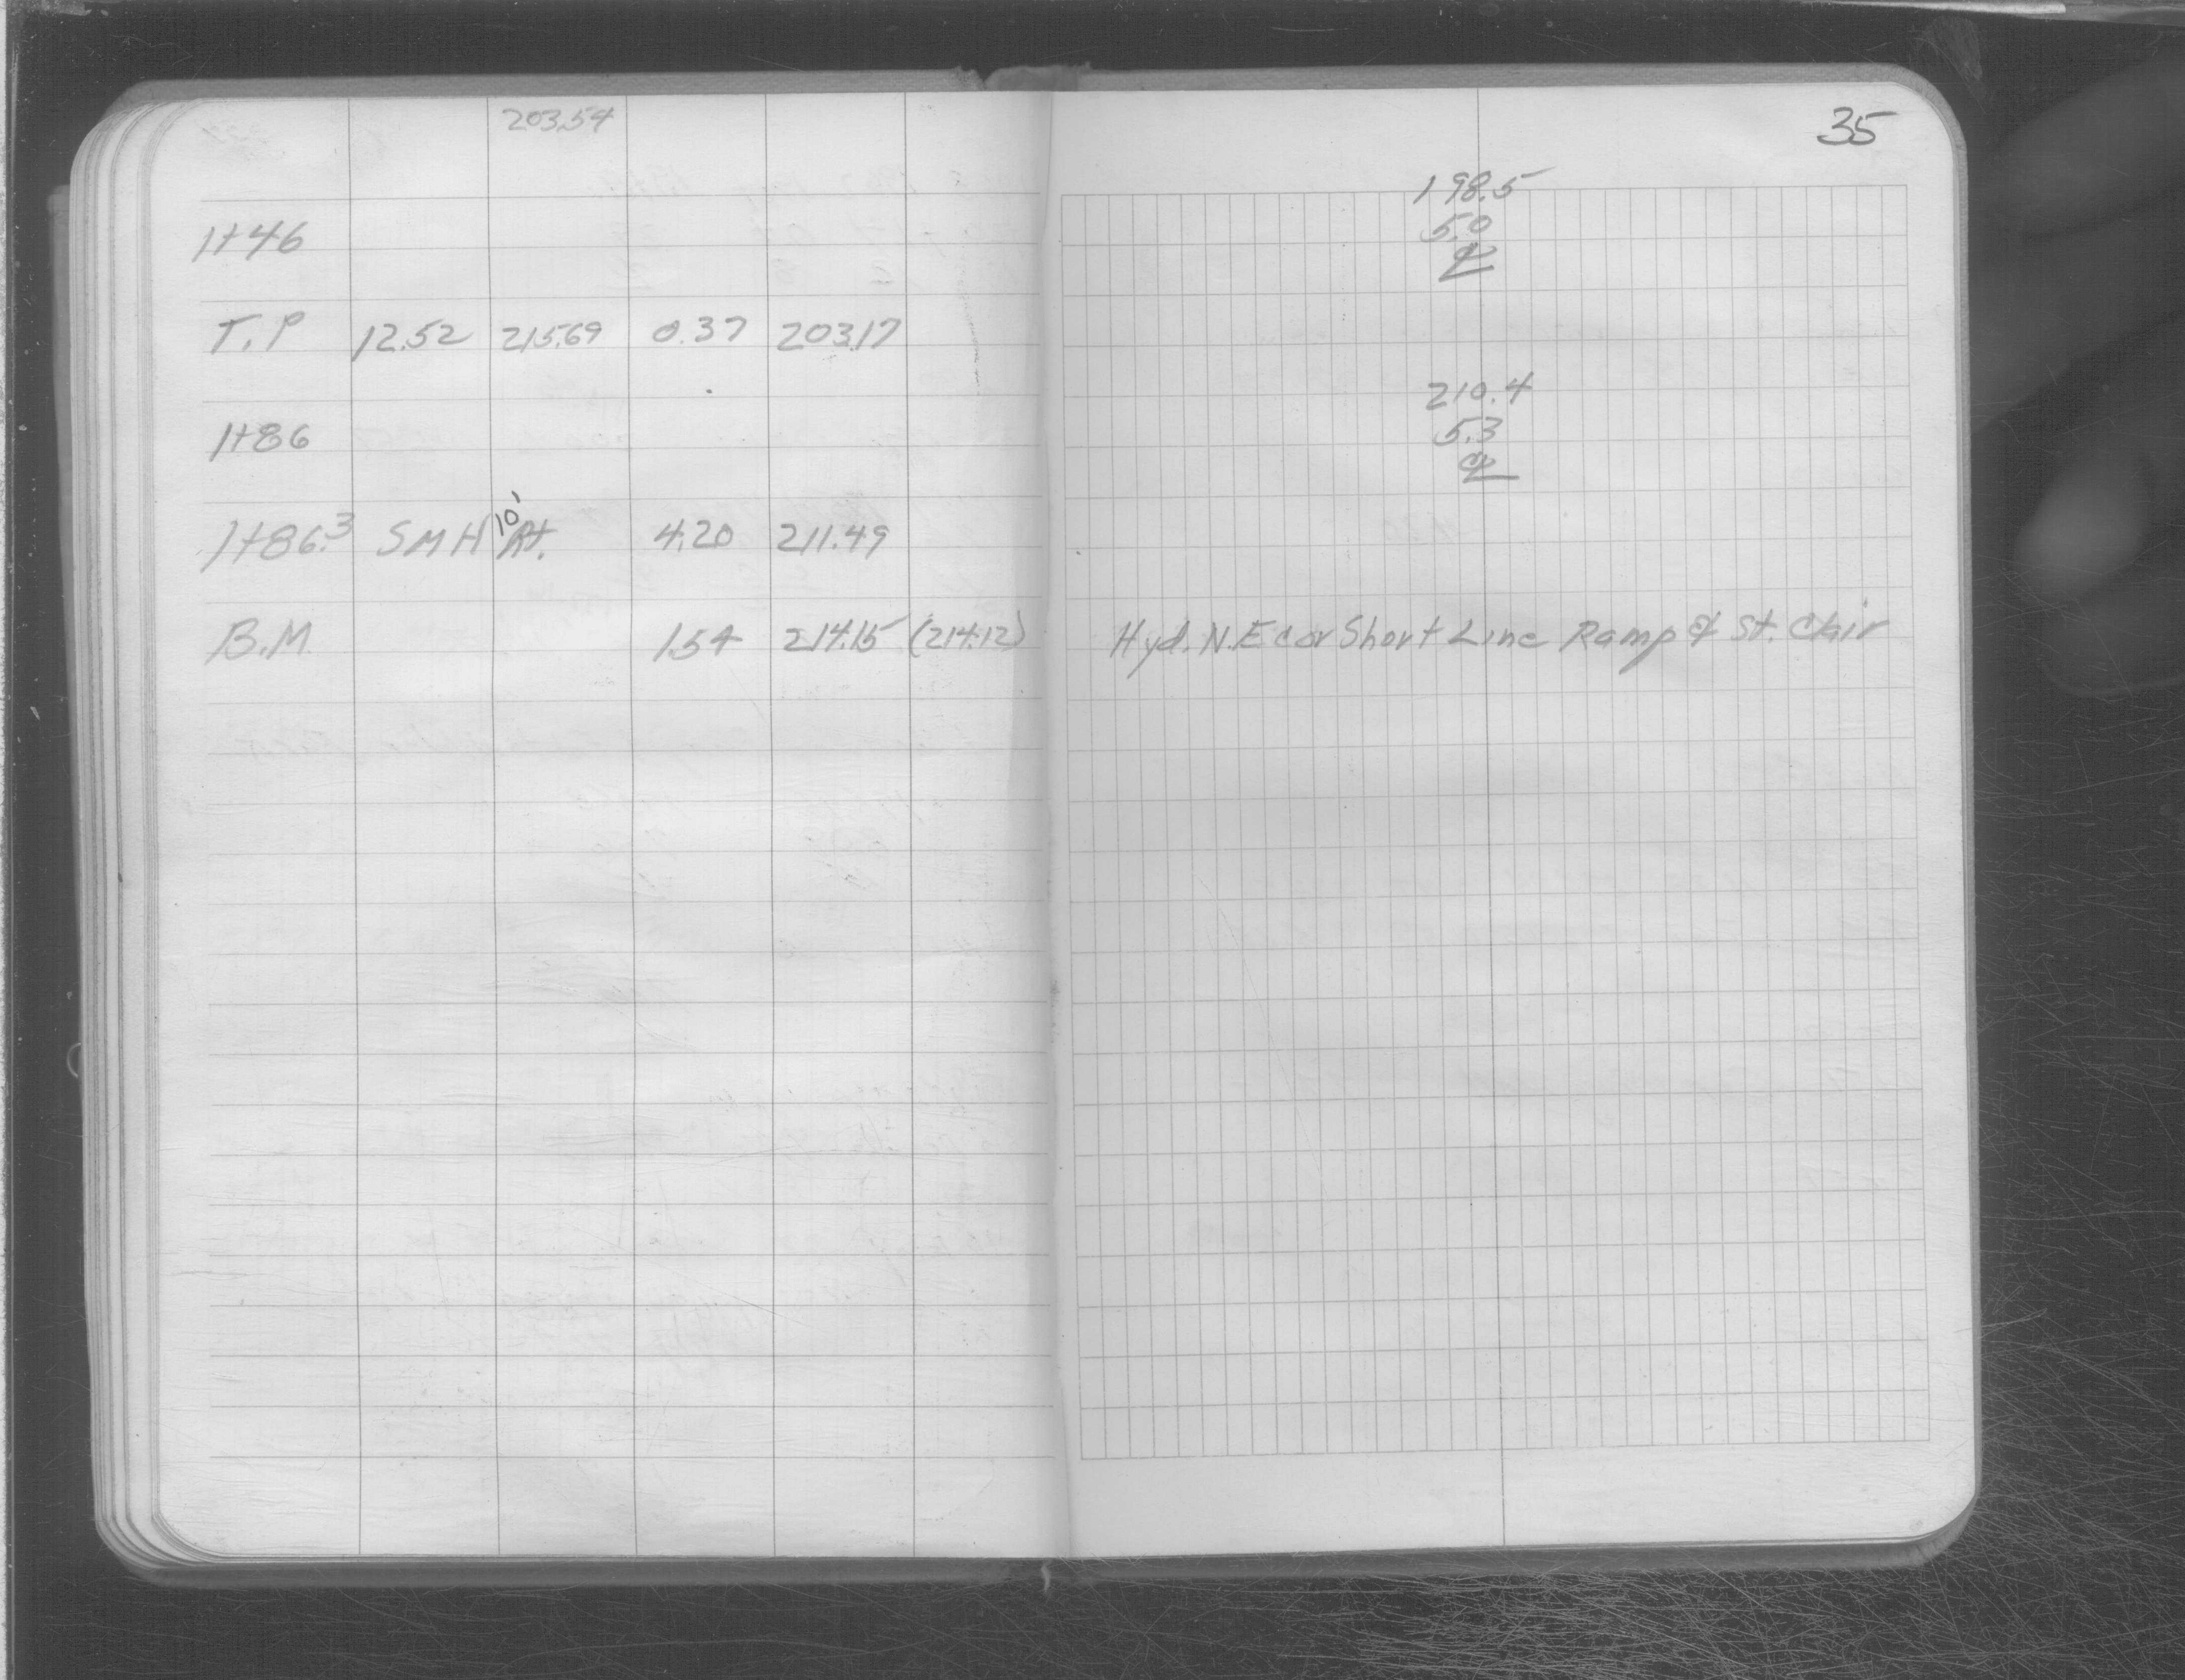 203.54
35
198.5
1+46
5.0
℄
T.P 12.52 215.69 0.37 203.17
210.4
1+86
5.3
℄
1+86.3 SMH 10' Rt. 4.20 211.49
B.M. 1.54 214.15 (214.12) Hyd. N.E cor Short Line Ramp & St. Clair